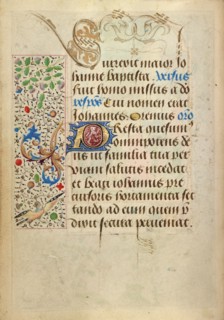 Surrexit maior Jo
hanne baptista. Versus
fuit homo missus a deo
Cui nomen erat
Johannes. Oremus oro
Presta quesumus
omnipotens de
us ut familia tua per
viam salutis incedat
et beati iohannis pre
cursoris hortamenta sec
tando ad eum quem p
dixit secura perveniat.